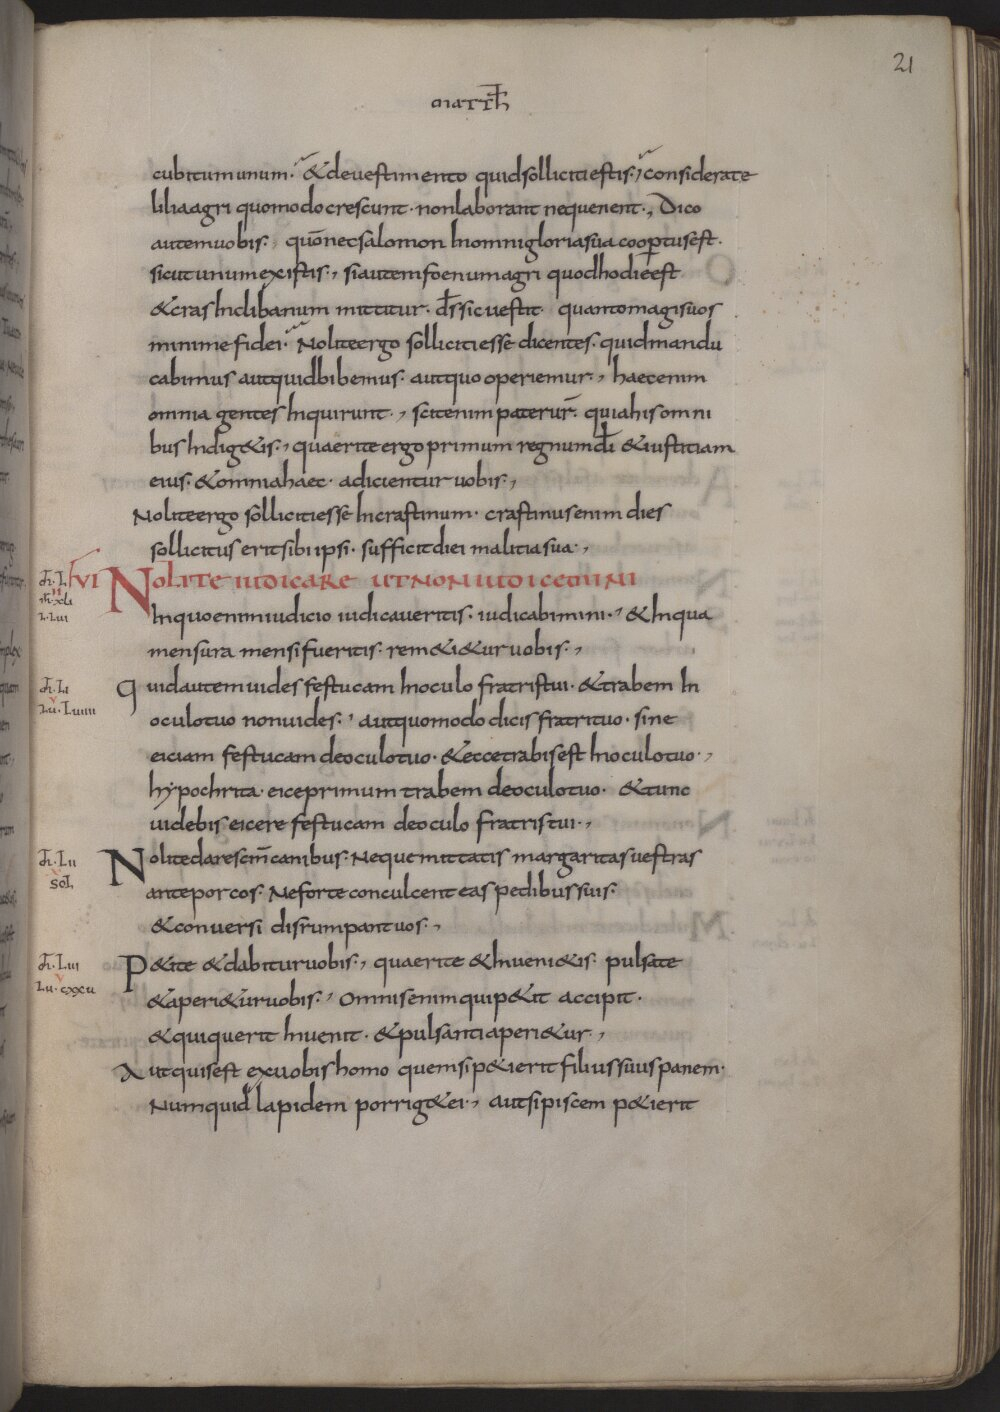 21
matth
cubitum unum. & de uestimento quid solliciti estis; considerate
lilia agri quomodo crescunt. non laborant neque nent., Dico
autem uobis., quō nec salomon In omni gloria sua coopertus est.
sicut unum ex istis., si autem foenum agri quod hodie est
& cras In clibanum mittitur. ds sic uestit. quanto magis uos
minime fidei. Nolite ergo solliciti esse dicentes. quid mandu
cabimus aut quid bibemus. aut quo operiemur., haec enim
omnia gentes Inquirunt., scit enim pater ur. quia his omni
bus Indig&is., quaerite ergo primum regnum di & iustitiam
eius. & omnia haec. adicientur uobis.,
Nolite ergo solliciti esse In crastinum. crastinus enim dies
sollicitus erit sibi ipsi. sufficit diei malitia sua.,
VI Nolite iudicare ut non iudicemini
In quo enim iudicio iudicaueritis. iudicabimini., & In qua
mensura mensi fueritis. rem&i&ur uobis.,
Quid autem uides festucam In oculo fratris tui. & trabem In
oculo tuo non uides., aut quomodo dicis fratri tuo. sine
eiciam festucam de oculo tuo. & ecce trabis est In oculo tuo.,
hypochrita. eice primum trabem de oculo tuo. & tunc
uidebis eicere festucam de oculo fratris tui.,
Nolite dare scm canibus. Neque mittatis margaritas uestras
ante porcos. Ne forte conculcent eas pedibus suis.
& conuersi disrumpant uos.,
P&ite & dabitur uobis., quaerite & Inueni&is. pulsate
& aperi&ur uobis., Omnis enim qui p&it accipit.
& qui querit Inuenit. & pulsanti aperi&ur.,
Aut quis est ex uobis homo quem si p&ierit filius suus panem.
Numquid lapidem porrig& ei., aut si piscem p&ierit